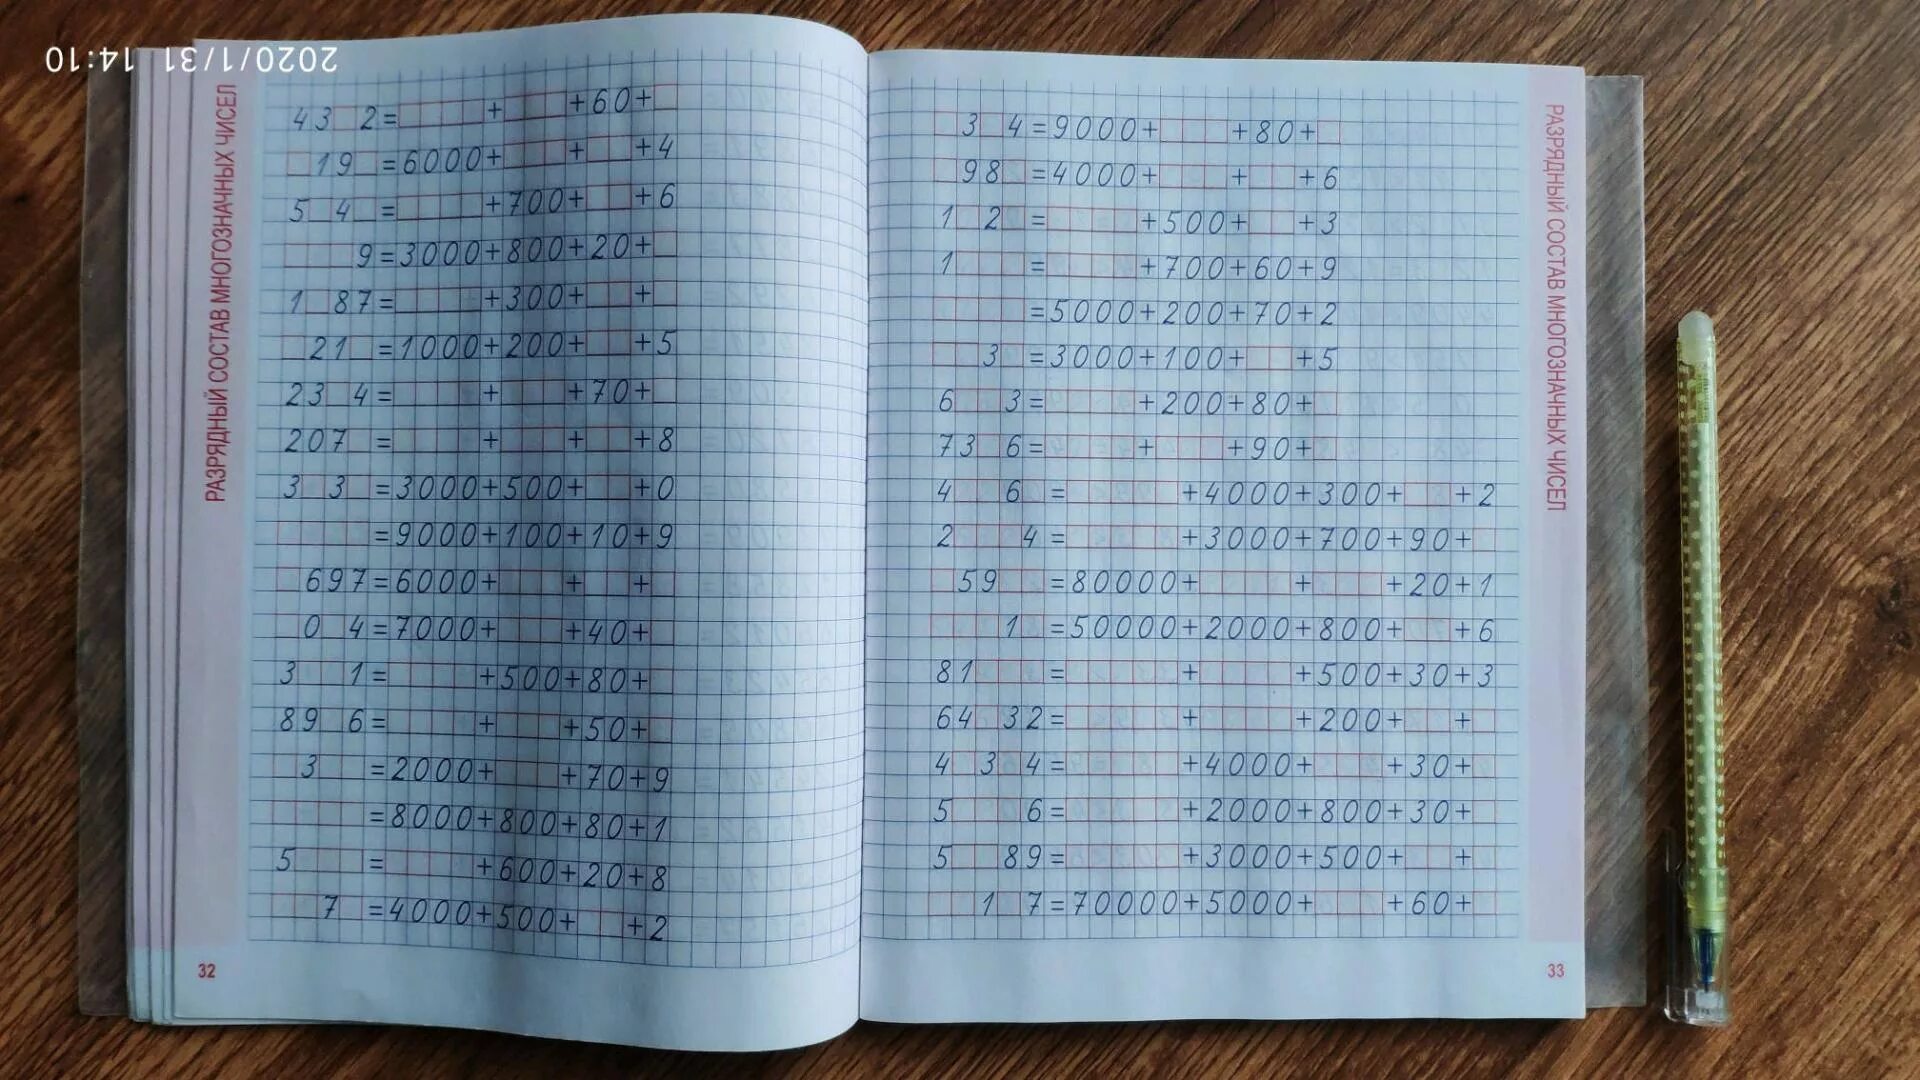 2020/1/31 14:10
РАЗРЯДНЫЙ СОСТАВ МНОГОЗНАЧНЫХ ЧИСЕЛ
43□2=□□□□+□□□+60+□
□19□=6000+□□□+□□+4
5□4□=□□□□+700+□□+6
□□□9=3000+800+20+□
1□87=□□□□+300+□□+□
□21□=1000+200+□□+5
23□4=□□□□+□□□+70+□
207□=□□□□+□□□+□□+8
3□3□=3000+500+□□+0
□□□□=9000+100+10+9
□697=6000+□□□+□□+□
□0□4=7000+□□□+40+□
3□□1=□□□□+500+80+□
89□6=□□□□+□□□+50+□
□3□□=2000+□□□+70+9
□□□□=8000+800+80+1
5□□□=□□□□+600+20+8
□□7□=4000+500+□□+2
32
□3□4=9000+□□□+80+□
□98□=4000+□□□+□□+6
1□2□=□□□□+500+□□+3
1□□□=□□□□+700+60+9
□□□□=5000+200+70+2
□□3□=3000+100+□□+5
6□□3=□□□□+200+80+□
73□6=□□□□+□□□+90+□
4□□6□=□□□□□+4000+300+□□+2
2□□□4=□□□□□+3000+700+90+□
□59□□=80000+□□□□+□□□+20+1
□□□1□=50000+2000+800+□□+6
81□□□=□□□□□+□□□□+500+30+3
64□32=□□□□□+□□□□+200+□□+□
4□3□4=□□□□□+4000+□□□+30+□
5□□□6=□□□□□+2000+800+30+□
5□□89=□□□□□+3000+500+□□+□
□□1□7=70000+5000+□□□+60+□
РАЗРЯДНЫЙ СОСТАВ МНОГОЗНАЧНЫХ ЧИСЕЛ
33